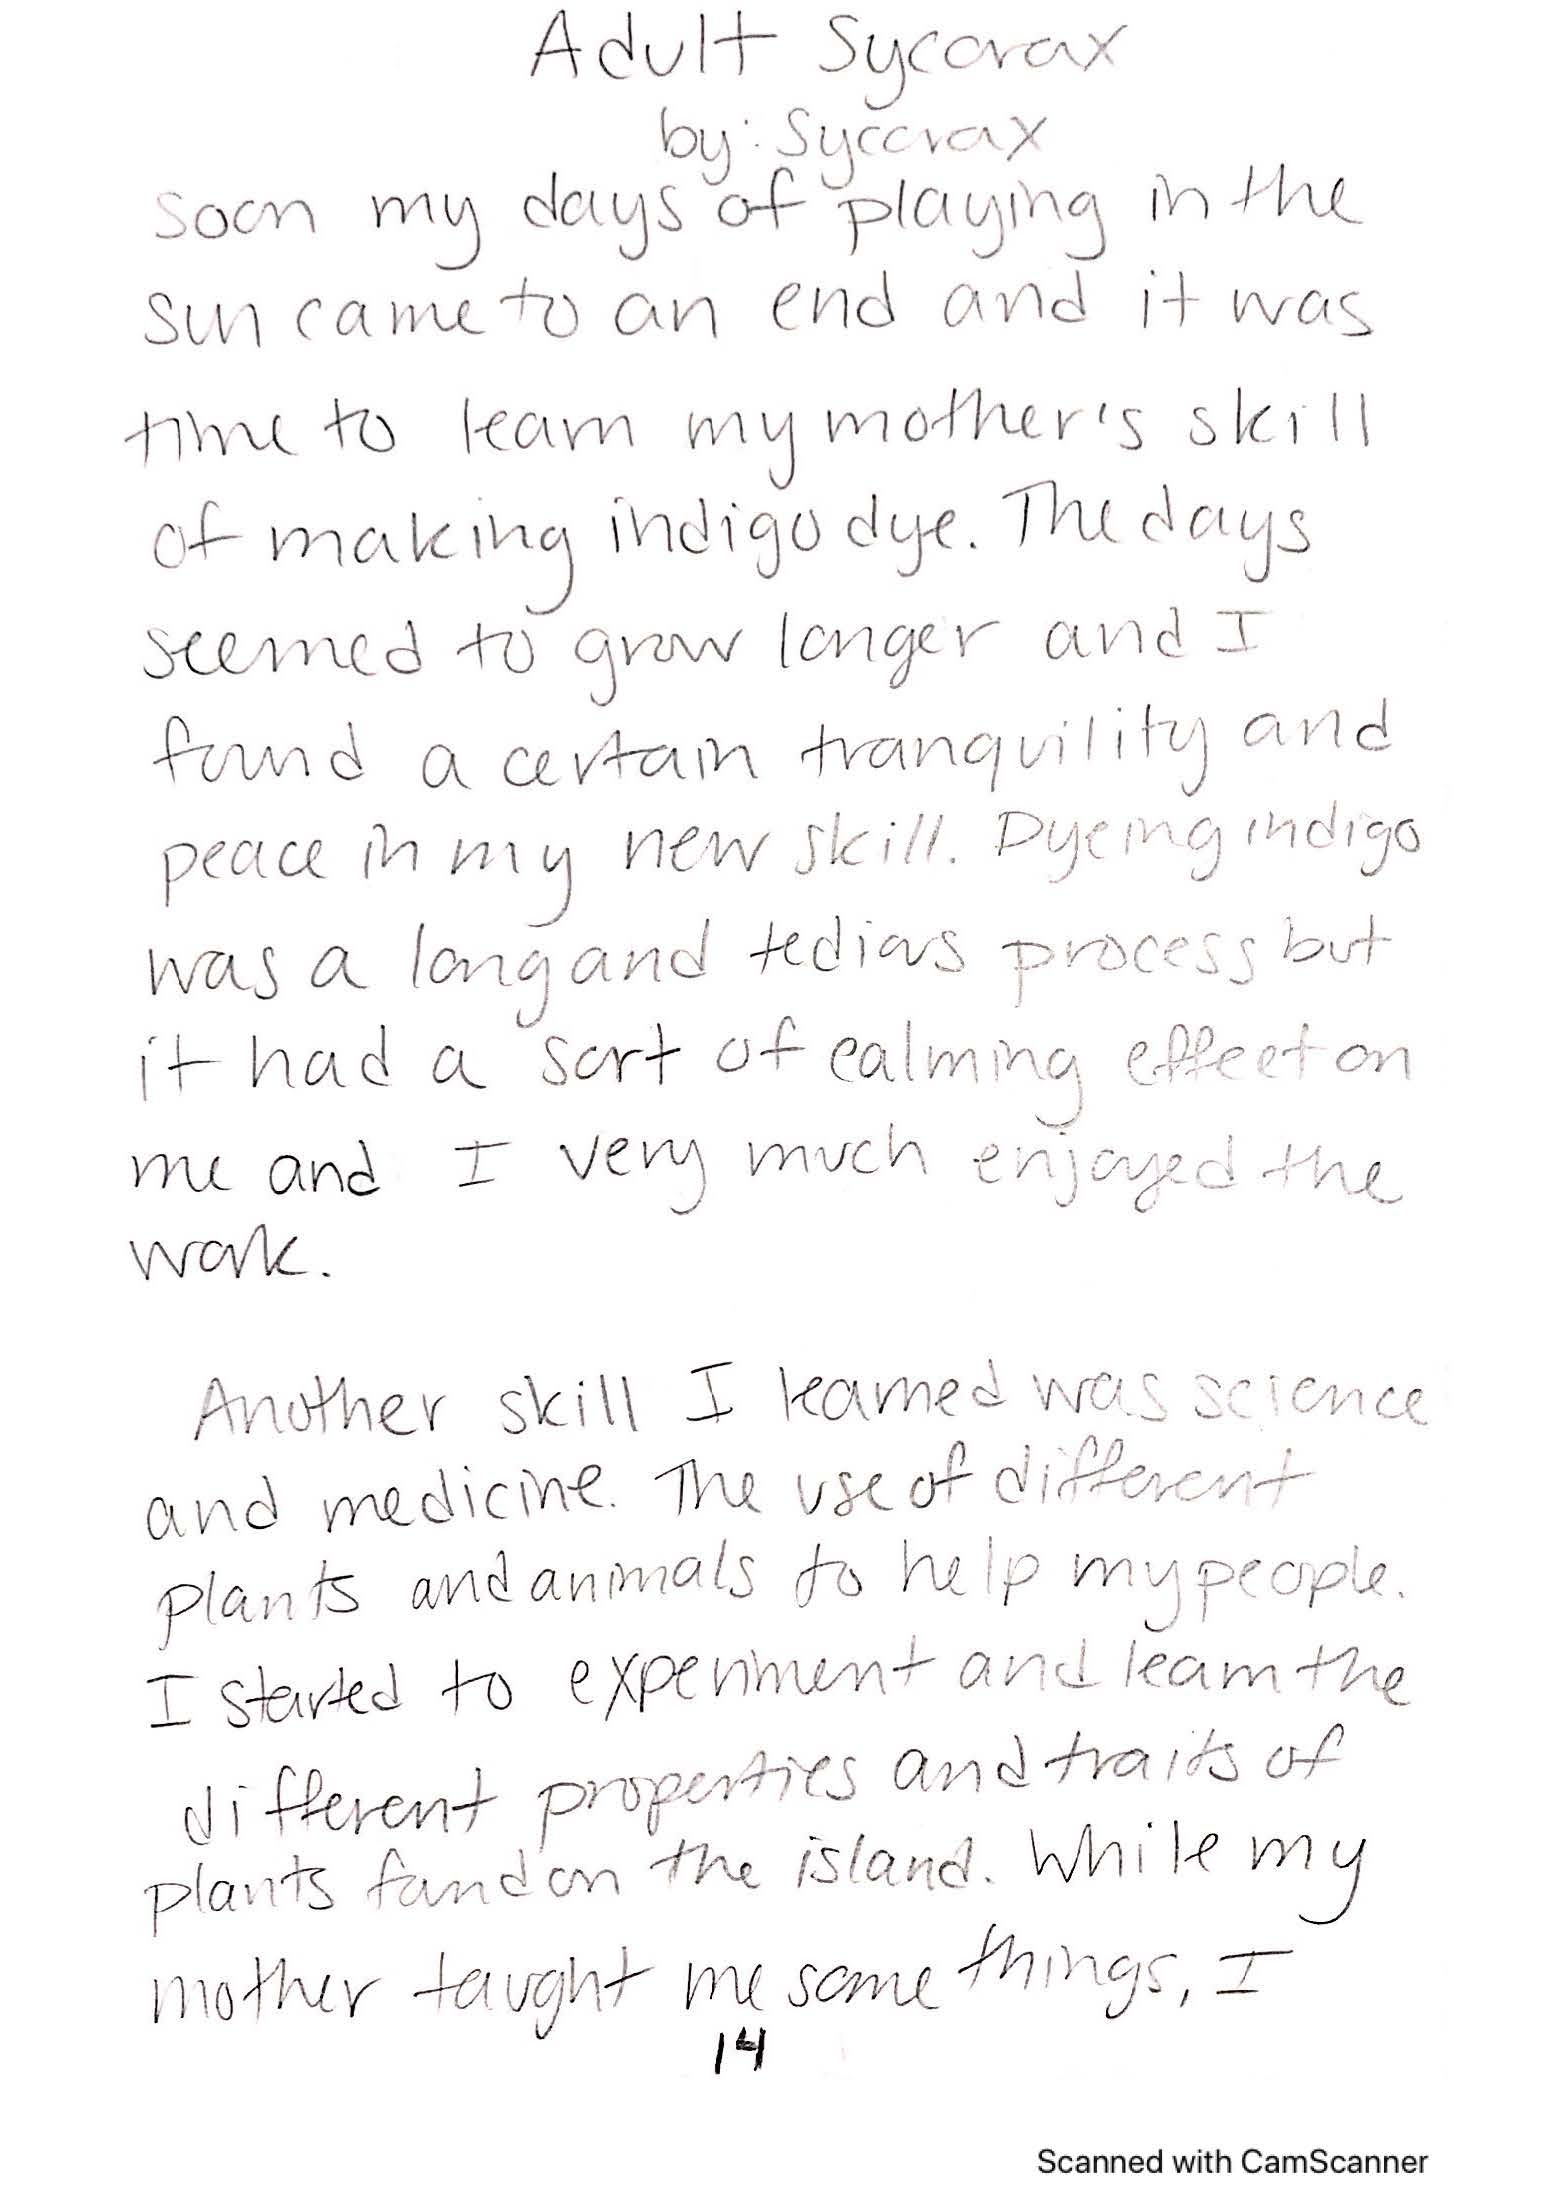 Adult Sycorax
by: Sycorax
soon my days of playing in the
sun came to an end and it was
time to learn my mother's skill
of making indigo dye. The days
seemed to grow longer and I
found a certain tranquility and
peace in my new skill. Dyeing indigo
was a long and tedious process but
it had a sort of calming effect on
me and I very much enjoyed the
work.
Another skill I learned was science
and medicine. The use of different
plants and animals to help my people.
I started to experiment and learn the
different properties and traits of
plants found on the island. While my
mother taught me some things, I
14
Scanned with CamScanner